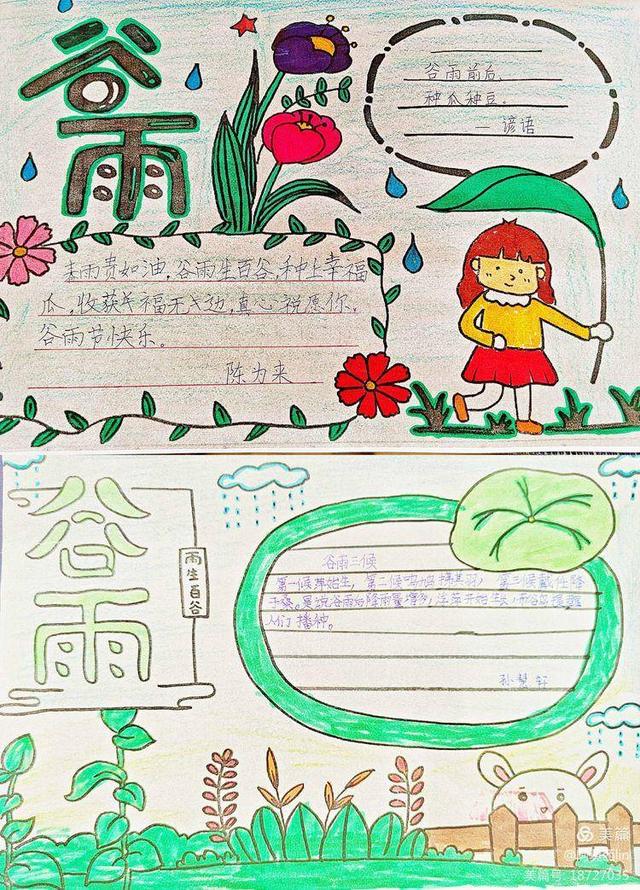 谷雨
谷雨前后
种瓜种豆
— 谚语
春雨贵如油,谷雨生百谷,种上幸福
瓜,收获幸福无边,真心祝愿你,
谷雨节快乐。
陈为来
谷雨
雨生百谷
谷雨三候
第一候萍始生,第二候鸣鸠拂其羽,第三候戴任降
于桑。是说谷雨后降雨量增多,浮萍开始生长,布谷鸟提醒
人们播种。
孙慧钰
美篇
美篇号:18727035